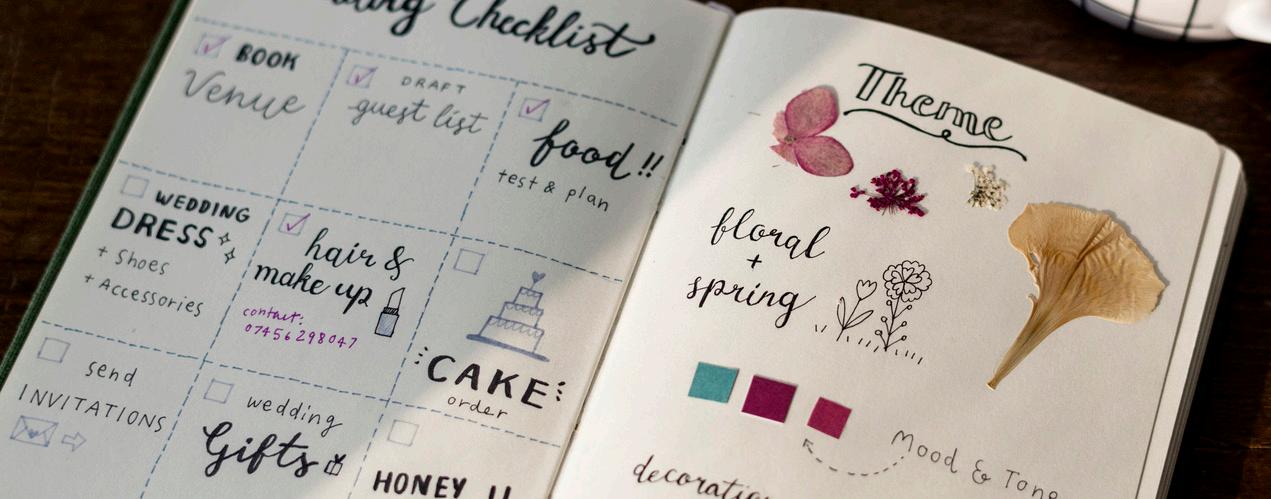 Checklist
BOOK
Venue
DRAFT
guest list
food!!
test & plan
WEDDING
DRESS
+ Shoes
+ Accessories
hair &
make up
contact:
07456298047
CAKE
order
send
INVITATIONS
wedding
Gifts
HONEY
Theme
floral
+
spring
Mood & Tone